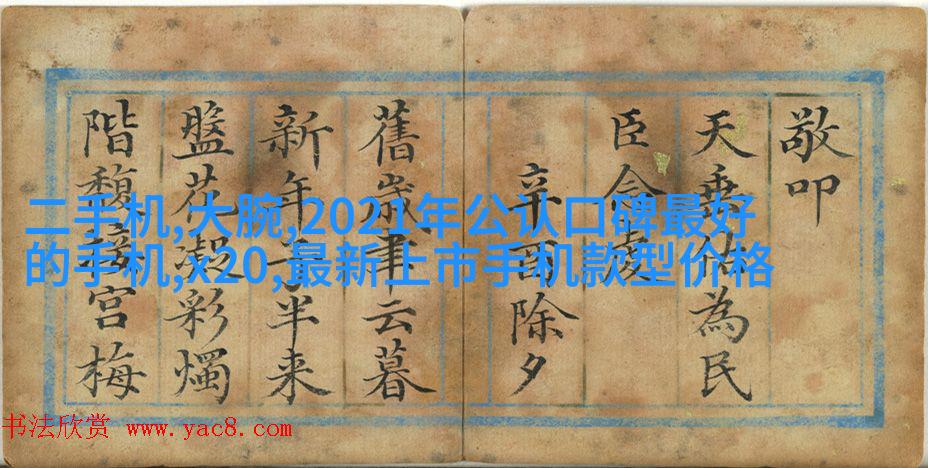 敬叩
天垂佑為民
臣
辛酉除夕
舊歲聿云暮
新年子半来
盤花凝彩燭
階馥接宮梅
二手机,大腕,2021年公认口碑最好
的手机,x20,最新上市手机款型价格
书法欣赏 www.yac8.com